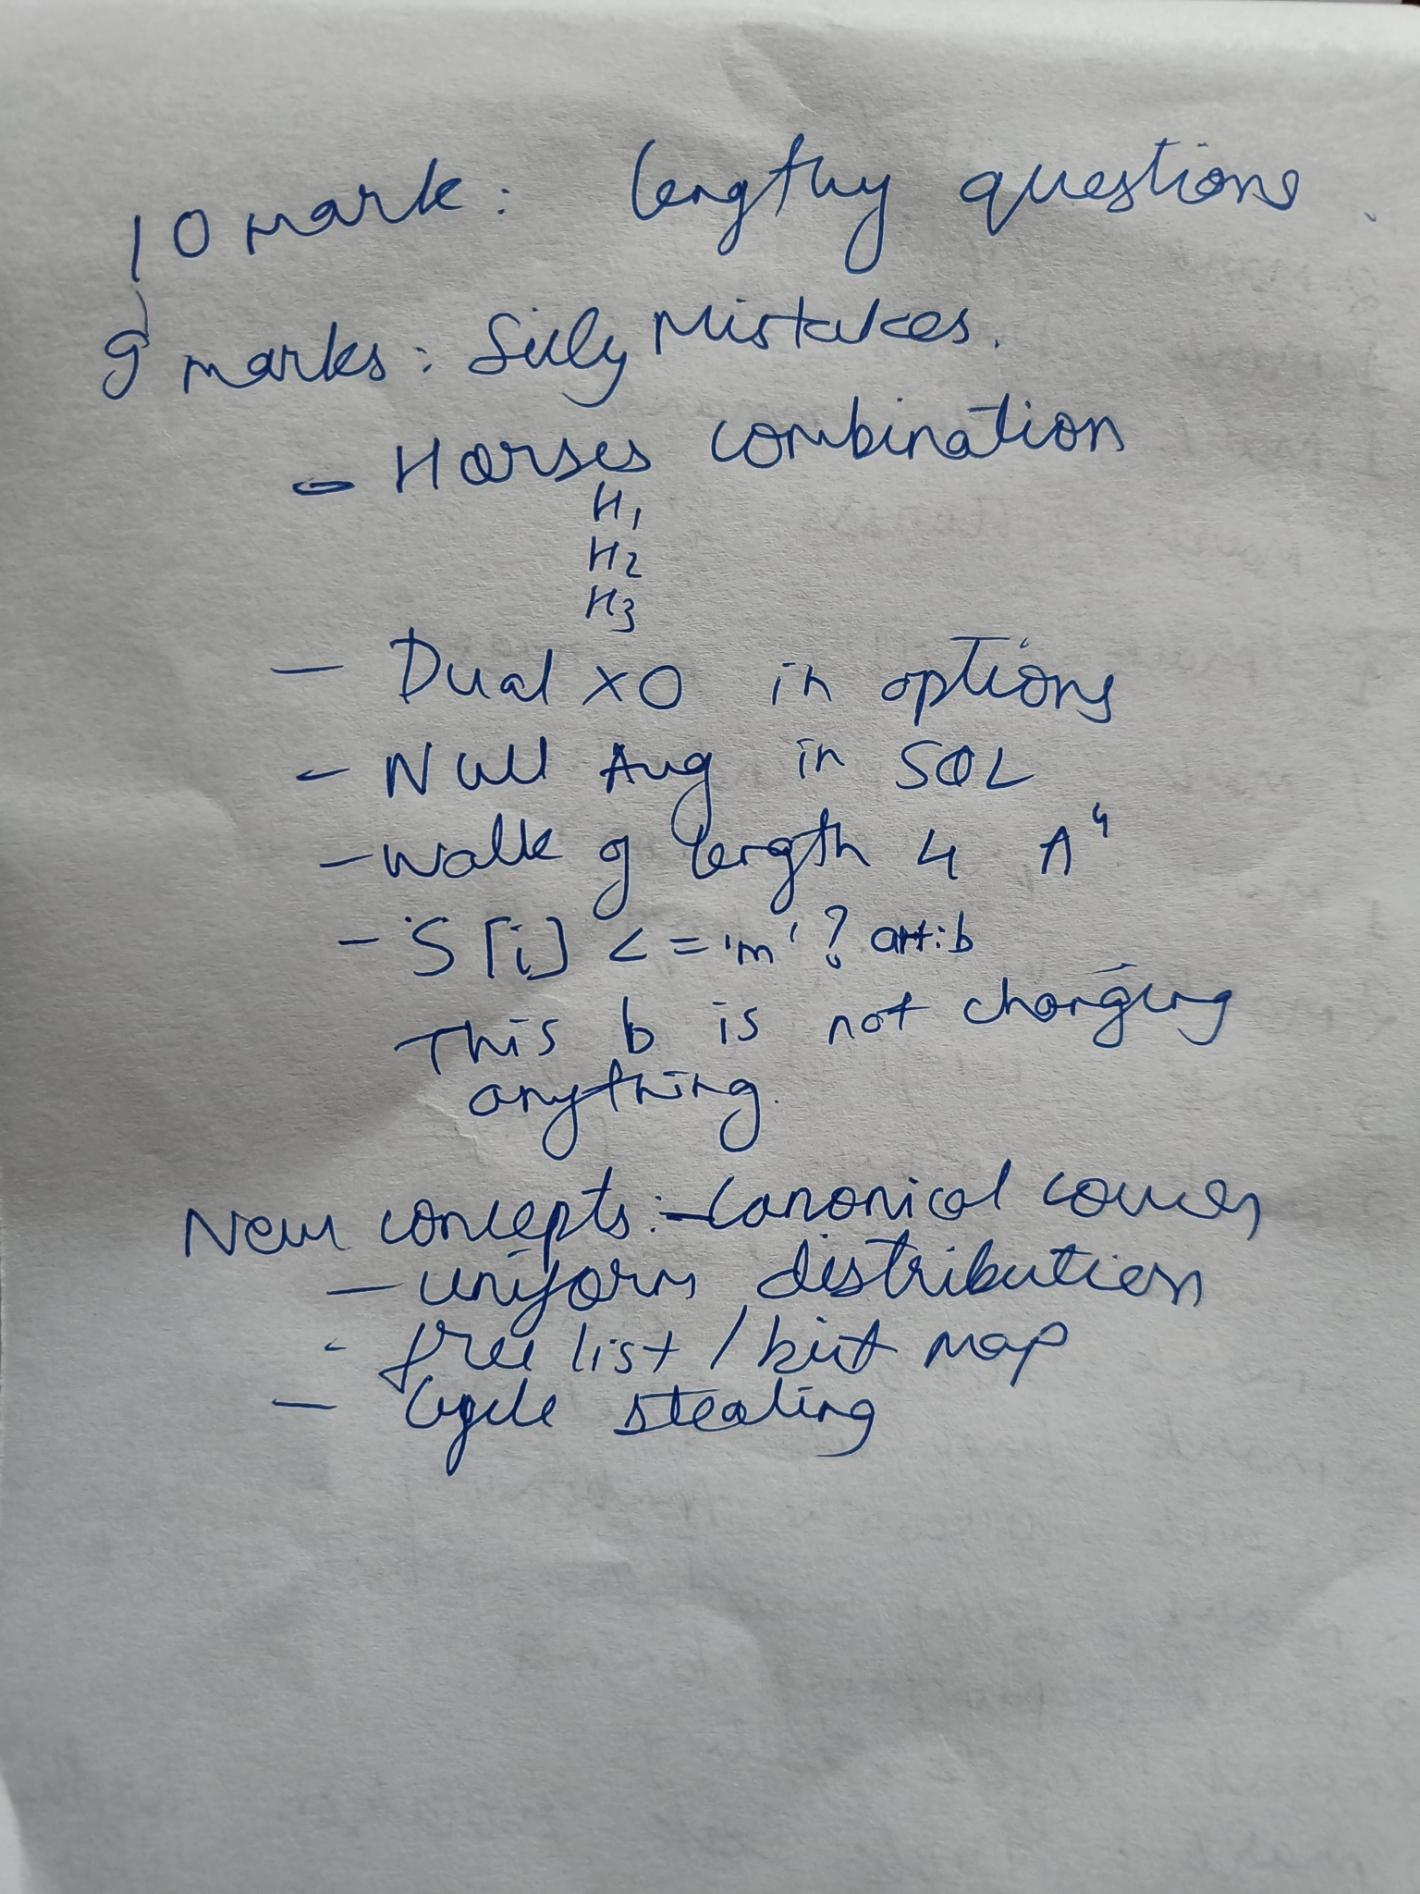 10 mark: lengthy questions.
9 marks: Silly Mistakes.
- Horses combination
H1
H2
H3
- Dual XO in options
- Null Aug in SQL
- walk of length 4 A⁴
- S[i] <= 'm' ? a++:b
This b is not changing
anything.
New concepts: - Canonical cover
- uniform distribution
- free list / bit map
- Cycle stealing